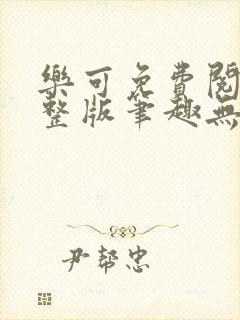 樂可免費閱
整版筆趣無
尹幫忠